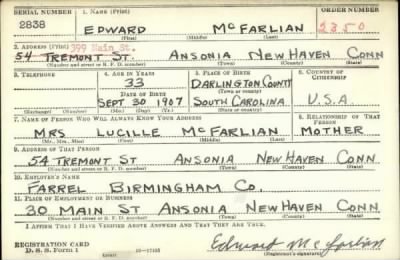 SERIAL NUMBER 1. NAME (Print) ORDER NUMBER
2838 EDWARD McFARLIAN 2350
(First) (Middle) (Last)
2. ADDRESS (Print) 399 Main St.
54 TREMONT ST. ANSONIA NEW HAVEN CONN
(Number and street or R. F. D. number) (Town) (County) (State)
3. TELEPHONE 4. AGE IN YEARS 5. PLACE OF BIRTH 6. COUNTRY OF CITIZENSHIP
33 DARLINGTON COUNTY
DATE OF BIRTH (Town or county)
SEPT 30 1907 SOUTH CAROLINA U.S.A.
(Exchange) (Number) (Mo.) (Day) (Yr.) (State or country)
7. NAME OF PERSON WHO WILL ALWAYS KNOW YOUR ADDRESS 8. RELATIONSHIP OF THAT PERSON
MRS LUCILLE McFARLIAN MOTHER
(Mr., Mrs., Miss) (First) (Middle) (Last)
9. ADDRESS OF THAT PERSON
54 TREMONT ST ANSONIA NEW HAVEN CONN
(Number and street or R. F. D. number) (Town) (County) (State)
10. EMPLOYER'S NAME
FARREL BIRMINGHAM CO.
11. PLACE OF EMPLOYMENT OR BUSINESS
30 MAIN ST ANSONIA NEW HAVEN CONN
(Number and street or R. F. D. number) (Town) (County) (State)
I AFFIRM THAT I HAVE VERIFIED ABOVE ANSWERS AND THAT THEY ARE TRUE.
REGISTRATION CARD
D. S. S. Form 1 Edward McFarlian
(Registrant's signature)